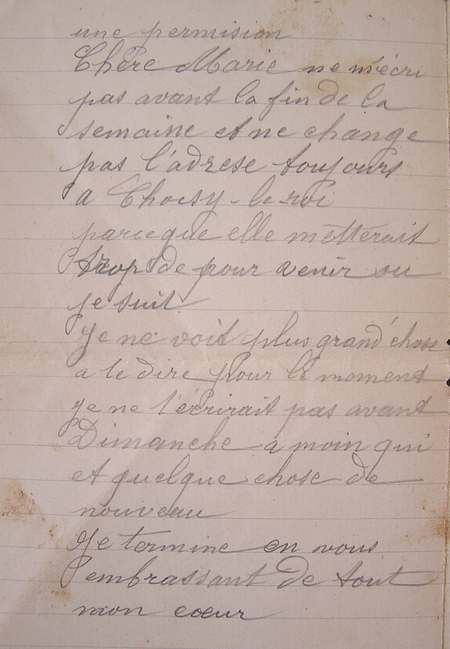 une permision
Chère Marie ne m'écri
pas avant la fin de la
semaine et ne change
pas l'adrese toujours
a Choisy-le-roi
parceque elle metterait
trop de pour venir ou
je suit
Je ne voit plus grand'chose
a te dire pour le moment
je ne t'écrirait pas avant
Dimanche a moin qui
et quelque chose de
nouveau
Je termine en vous
embrassant de tout
mon cœur